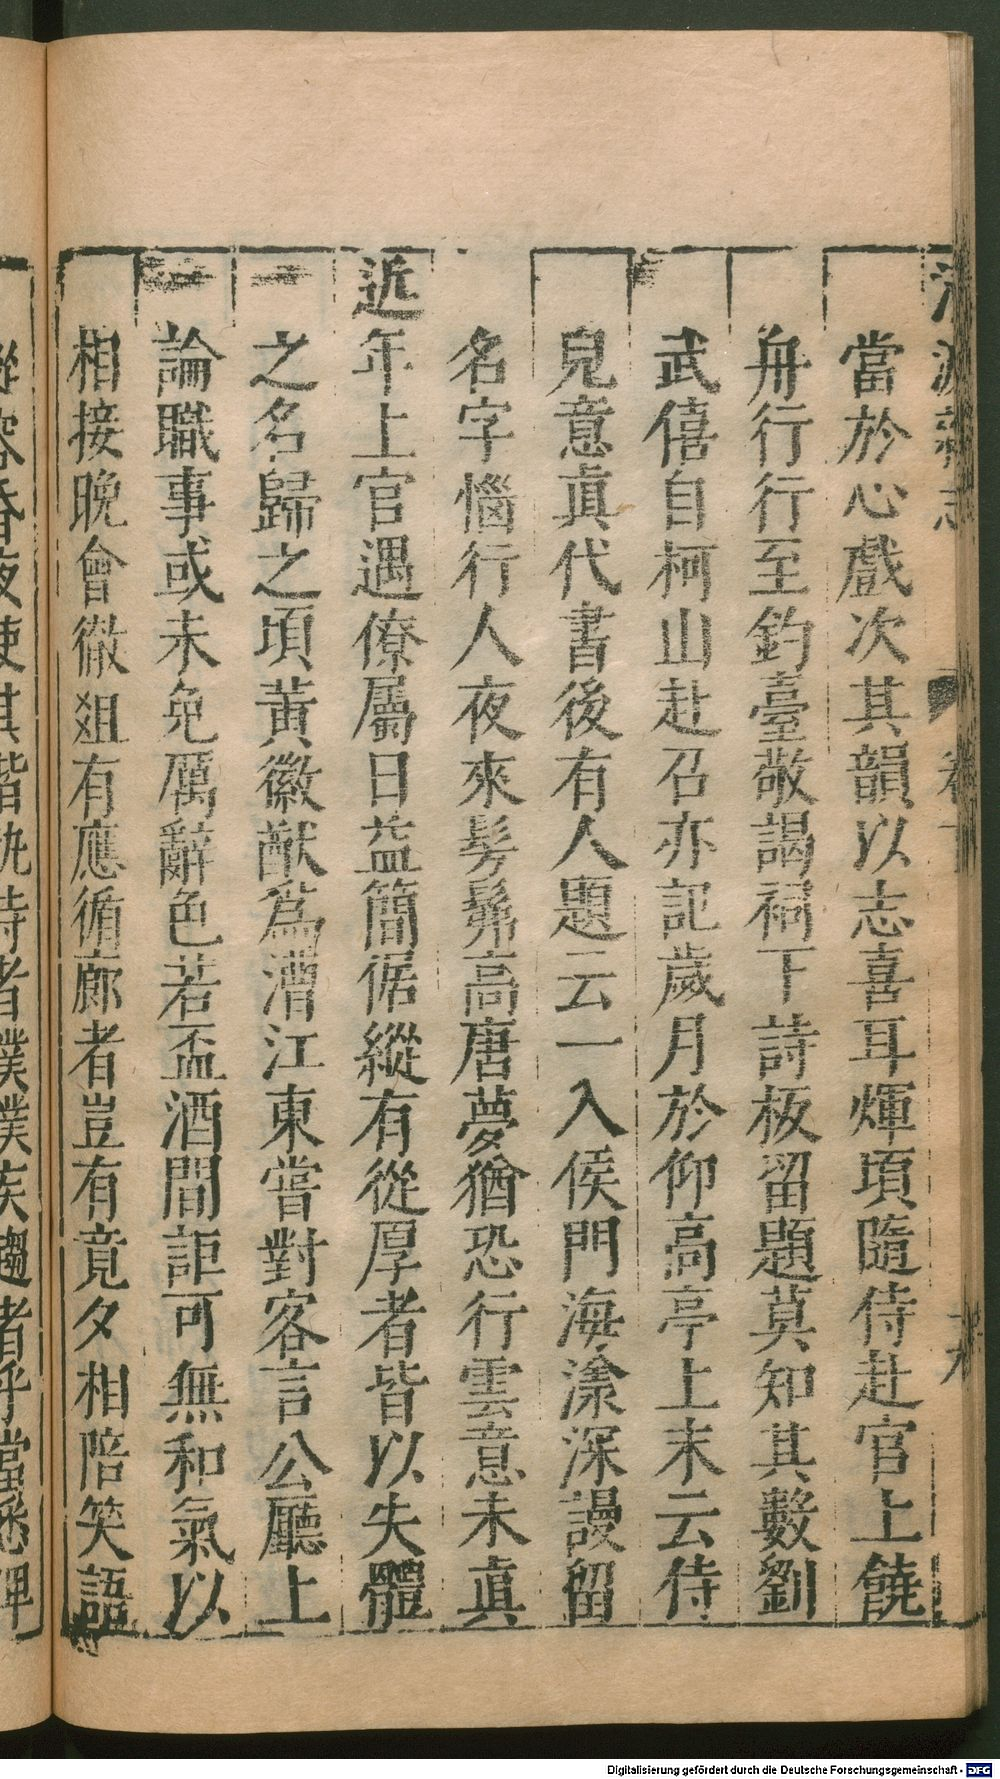 當於心戲次其韻以志喜耳煇頃隨侍赴官上饒
舟行行至釣臺敬謁祠下詩板留題莫知其數劉
武僖自柯山赴召亦記歲月於仰高亭上末云侍
兒意眞代書後有人題云一入侯門海漾深謾留
名字惱行人夜來髣髴高唐夢猶恐行雲意未眞
近年上官遇僚屬日益簡倨縱有從厚者皆以失體
之名歸之頃黃徽猷爲漕江東嘗對客言公廳上
論職事或未免厲辭色若盃酒間詎可無和氣以
相接晚會徹俎有應循廊者豈有竟夕相陪笑語
從容昏夜使其

Digitalisierung gefördert durch die Deutsche Forschungsgemeinschaft - DFG